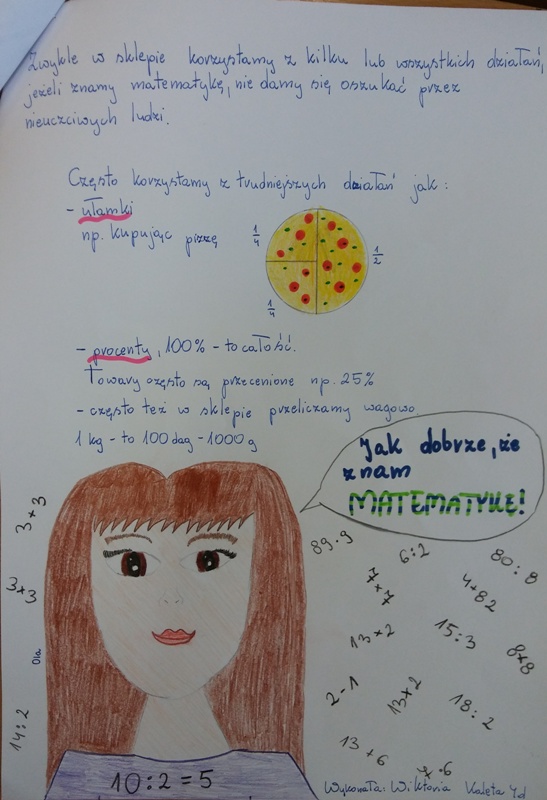 Zwykle w sklepie korzystamy z kilku lub wszystkich działań,
jeżeli znamy matematykę, nie damy się oszukać przez
nieuczciwych ludzi.
Często korzystamy z trudniejszych działań jak:
- ułamki
np. kupując pizzę
1/4
1/4
1/2
- procenty, 100% - to całość.
Towary często są przecenione np. 25%
- często też w sklepie przeliczamy wagowo
1 kg - to 100 dag - 1000 g
Jak dobrze, że
znam
MATEMATYKĘ!
14:2
Ola
3+3
3×3
10:2=5
89·9
7×7
6:2
2-1
13×2
13+6
13×2
15:3
4+82
80:8
18:2
8+8
7·6
Wykonała: Wiktoria Kaleta 4d